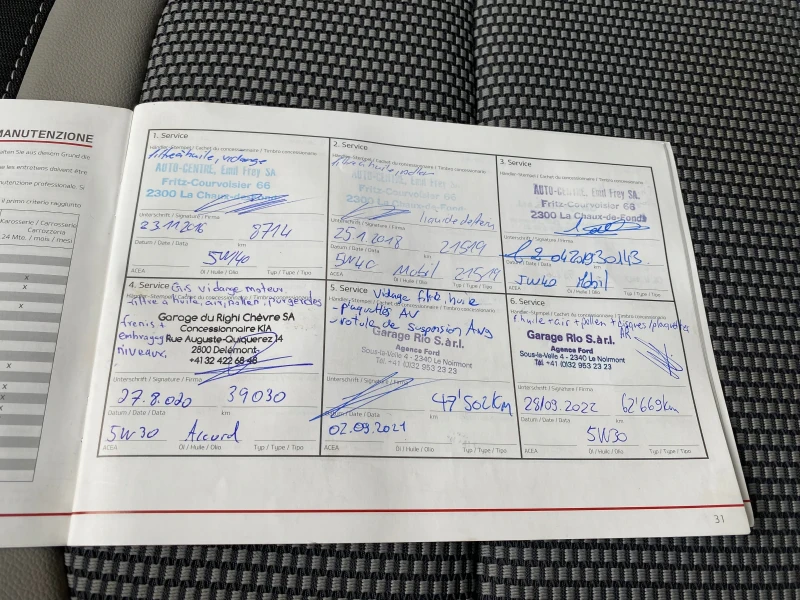 MANUTENZIONE
aiten Sie aus diesem Grund die
les entretiens doivent être
nutenzione professionale. Si
il primo criterio raggiunto
Karosserie / Carrosserie
Carrozzeria
24 Mte. / mois / mesi
x
x
x
x
x
x
1. Service
Händler-Stempel / Cachet du concessionnaire / Timbro concessionario
filtre à huile, vidange
AUTO-CENTRE, Emil Frey SA.
Fritz-Courvoisier 66
2300 La Chaux-de-Fonds
Unterschrift / Signature / Firma
23.11.2016 8714
Datum / Date / Data km
5W40
ACEA Öl / Huile / Olio Typ / Type / Tipo
2. Service
Händler-Stempel / Cachet du concessionnaire / Timbro concessionario
AUTO-CENTRE, Emil Frey SA.
Fritz-Courvoisier 66
2300 La Chaux-de-Fonds
Unterschrift / Signature / Firma
25.1.2018 21519
Datum / Date / Data km
5W40 Mobil 21519
ACEA Öl / Huile / Olio Typ / Type / Tipo
3. Service
Händler-Stempel / Cachet du concessionnaire / Timbro concessionario
AUTO-CENTRE, Emil Frey SA.
Fritz-Courvoisier 66
2300 La Chaux-de-Fonds
Unterschrift / Signature / Firma
30143
Datum / Date / Data km
5W40 Mobil
ACEA Öl / Huile / Olio Typ / Type / Tipo
4. Service
vidange moteur
Händler-Stempel / Cachet du concessionnaire / Timbro concessionario
filtre à huile, air, pollen, purger des
Garage du Righi Chèvre SA
freins + Concessionnaire KIA
embrayage Rue Auguste-Quiquerez 14
niveaux, 2800 Delémont
+41 32 422 68 48
Unterschrift / Signature / Firma
27.8.020 39030
Datum / Date / Data km
5W30 Accord
ACEA Öl / Huile / Olio Typ / Type / Tipo
5. Service Vidage filtre huile
Händler-Stempel / Cachet du concessionnaire / Timbro concessionario
- plaquettes AV
- rotule de suspension AVG
Garage Rio S.à.r.l.
Agence Ford
Sous-la-Velle 4 - 2340 Le Noirmont
Tél. +41 (0)32 953 23 23
Unterschrift / Signature / Firma
47'502KM
Datum / Date / Data km
02.09.2021
ACEA Öl / Huile / Olio Typ / Type / Tipo
6. Service
Händler-Stempel / Cachet du concessionnaire / Timbro concessionario
f. huile + air + pollen + disques/plaquettes
AR
Garage Rio S.àr.l.
Agence Ford
Sous-la-Velle 4 - 2340 Le Noirmont
Tél. +41 (0)32 953 23 23
Unterschrift / Signature / Firma
28/09.2022 62'669km
Datum / Date / Data km
5W30
ACEA Öl / Huile / Olio Typ / Type / Tipo
31